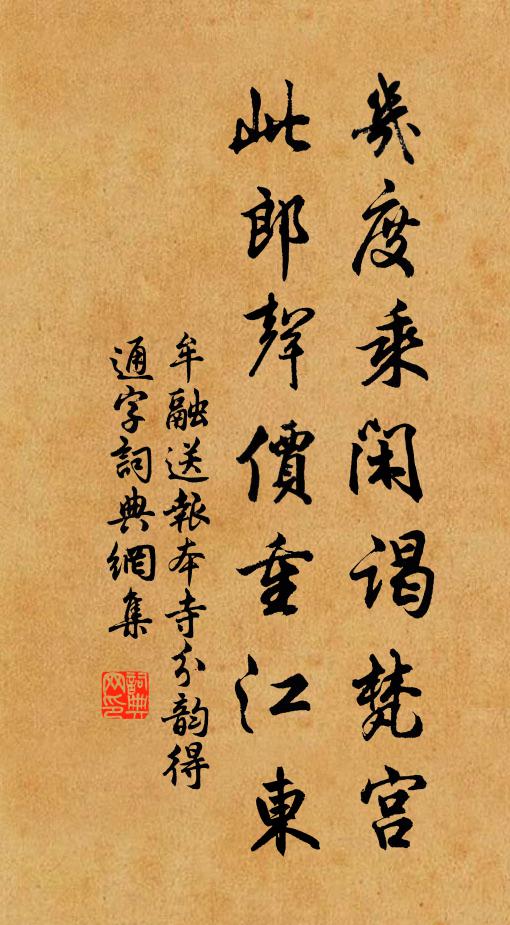 幾度乘閑謁梵宮
此郎聲價重江東
牟融送報本寺分韵得
通字詞典網集
詞典網印